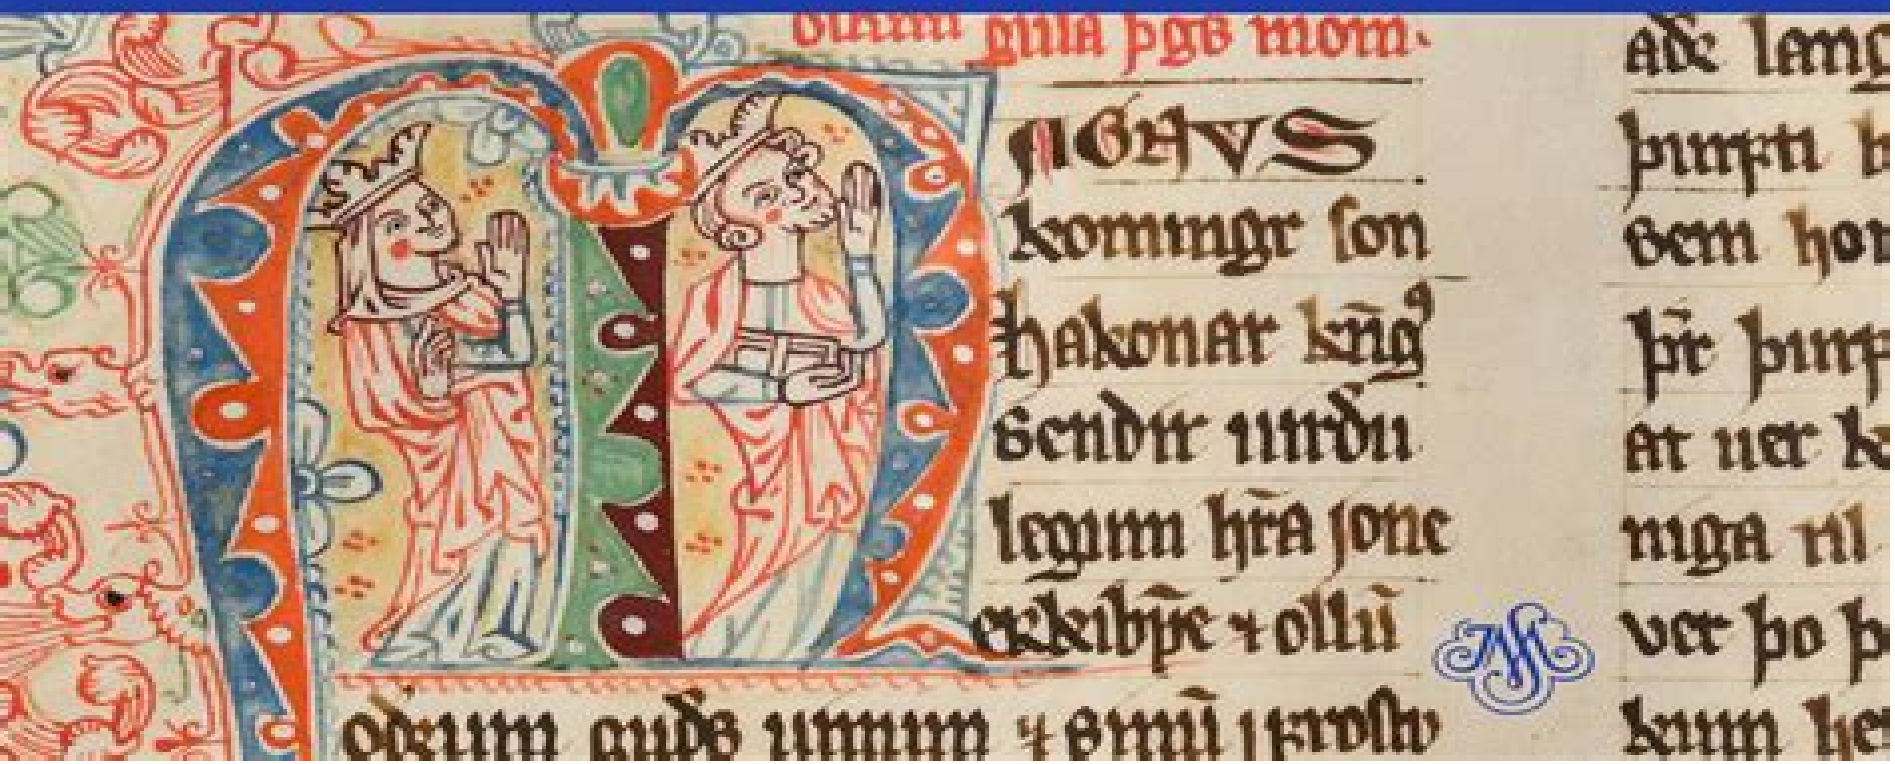 gilia þgs mom.
MAGNVS
konungr son
hakonar kūgˢ
sendir uirdu
legum h̄ra jone
erkibpe ⁊ ollū
odrum guds uinum ⁊ sinū j
adr lang
þurpti
sem hon
þr þurf
at uer k
niga til
ver þo þ
kum her